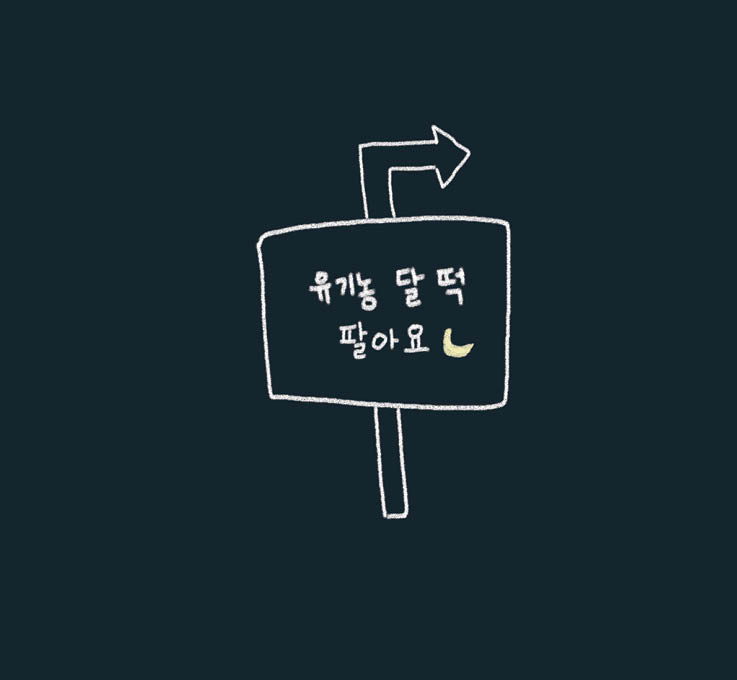 유기농 달 떡
팔아요